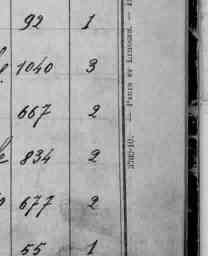 92 1
1040 3
667 2
834 2
677 2
55 1
3792-10. — Paris et Limoges. —